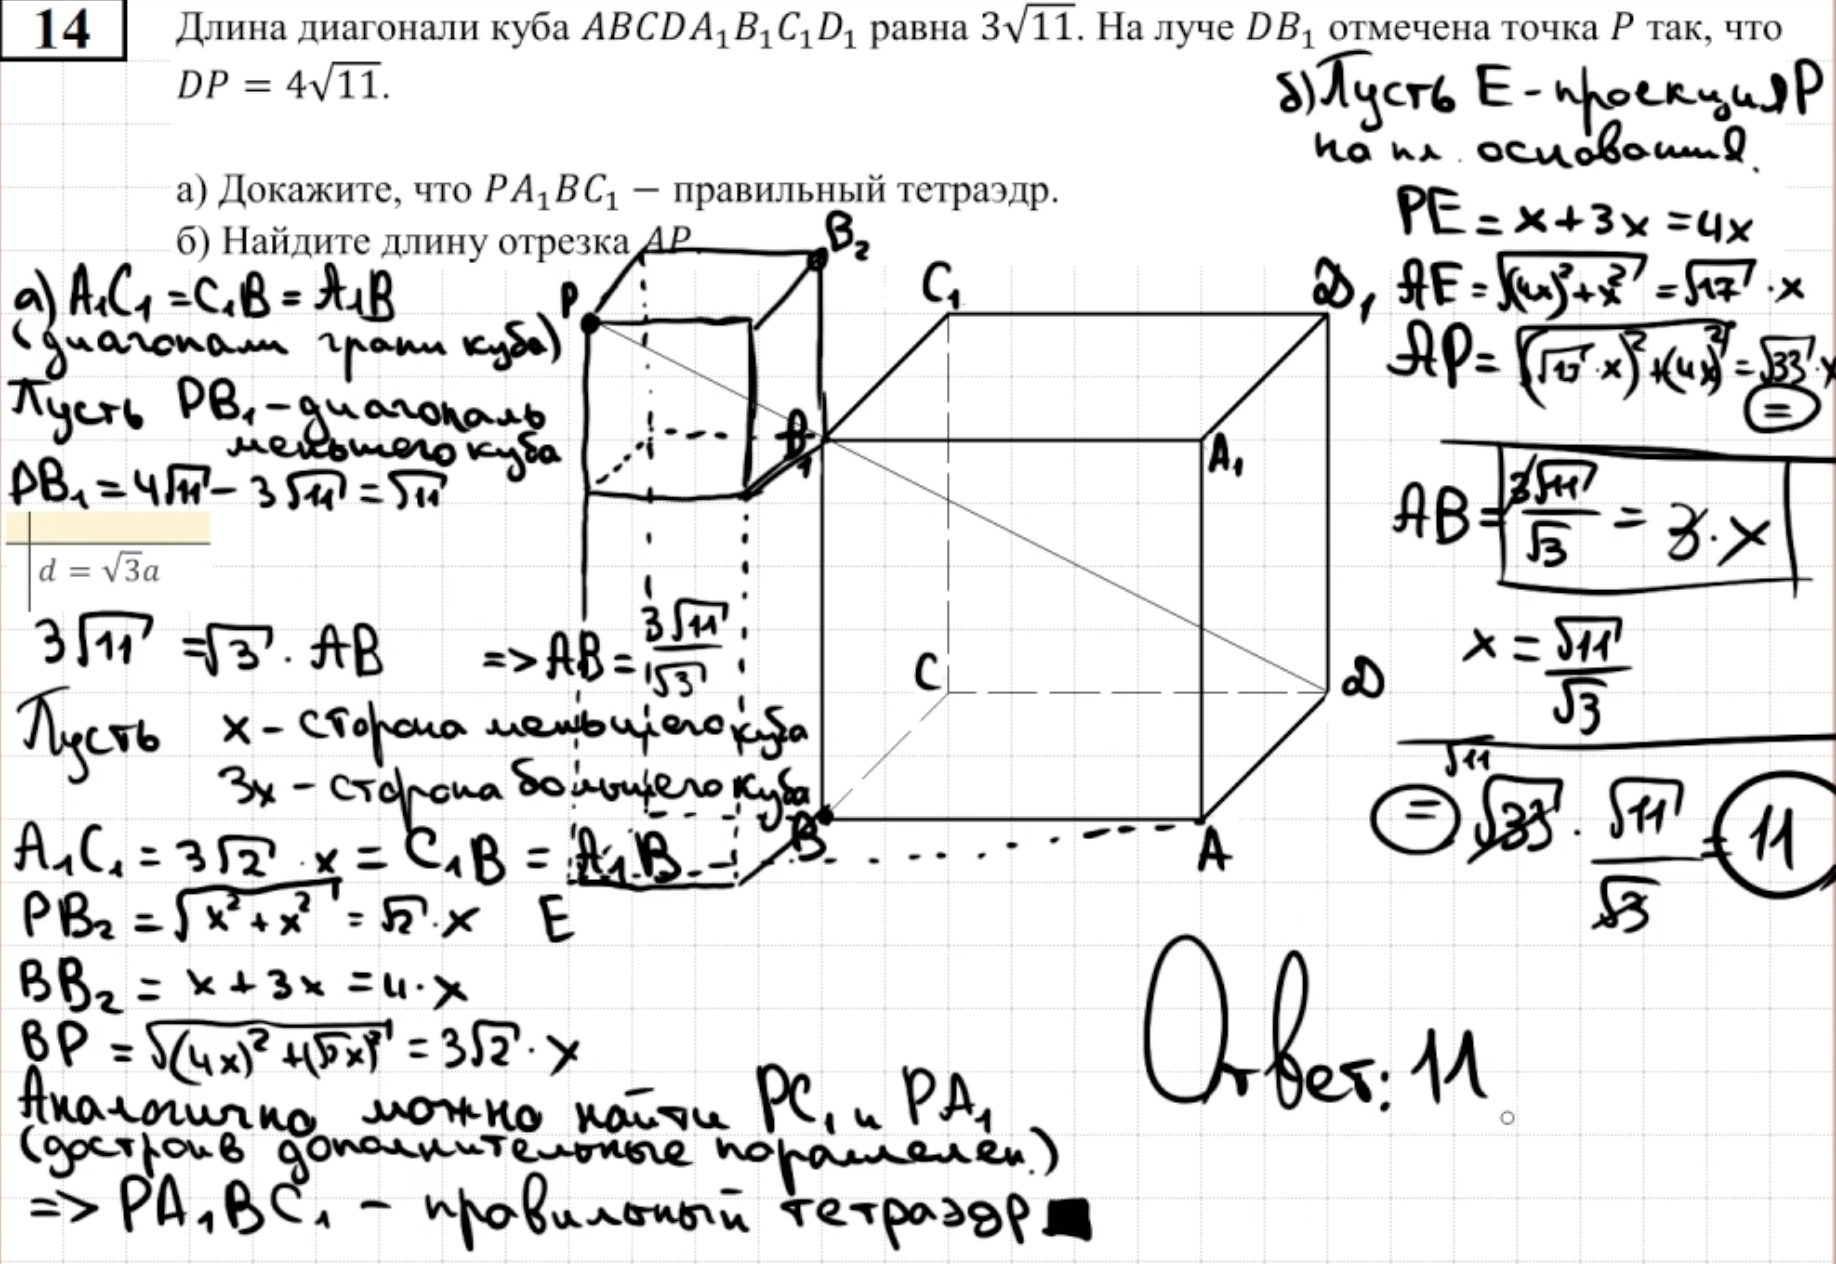 14
Длина диагонали куба ABCDA₁B₁C₁D₁ равна 3√11. На луче DB₁ отмечена точка P так, что
DP = 4√11.
а) Докажите, что PA₁BC₁ – правильный тетраэдр.
б) Найдите длину отрезка AP
а) A₁C₁ = C₁B = A₁B
(диагонали грани куба)
Пусть PB₁ - диагональ
меньшего куба
PB₁ = 4√11 - 3√11 = √11
d = √3a
3√11 = √3 · AB => AB = 3√11/√3
Пусть x - сторона меньшего куба
3x - сторона большего куба
A₁C₁ = 3√2 · x = C₁B = A₁B
PB₂ = √(x² + x²) = √2 · x
BB₂ = x + 3x = 4 · x
BP = √((4x)² + (√2x)²) = 3√2 · x
Аналогично можно найти PC₁ и PA₁
(достроив дополнительные параллелеп.)
=> PA₁BC₁ - правильный тетраэдр
P
B₂
C₁
D₁
B₁
A₁
C
D
B
A
E
б) Пусть E - проекция P
на пл. основания.
PE = x + 3x = 4x
AE = √((4x)² + x²) = √17 · x
AP = √((√17 · x)² + (4x)²) = √33 · x
=
AB = 3√11/√3 = 3 · x
x = √11/√3
= √33 · √11/√3 = 11
√11
Ответ: 11